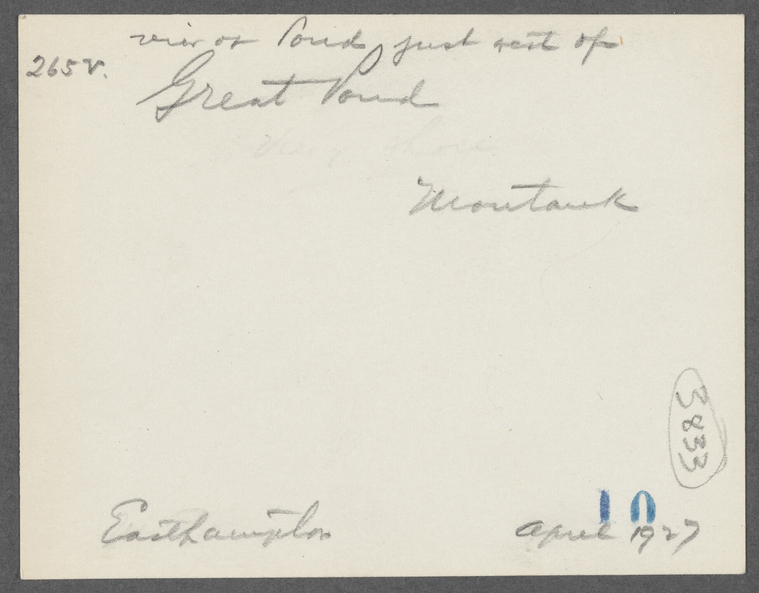 view of Pond just west of
265v.
Great Pond
Montauk
3833
10
Easthampton
April 1927